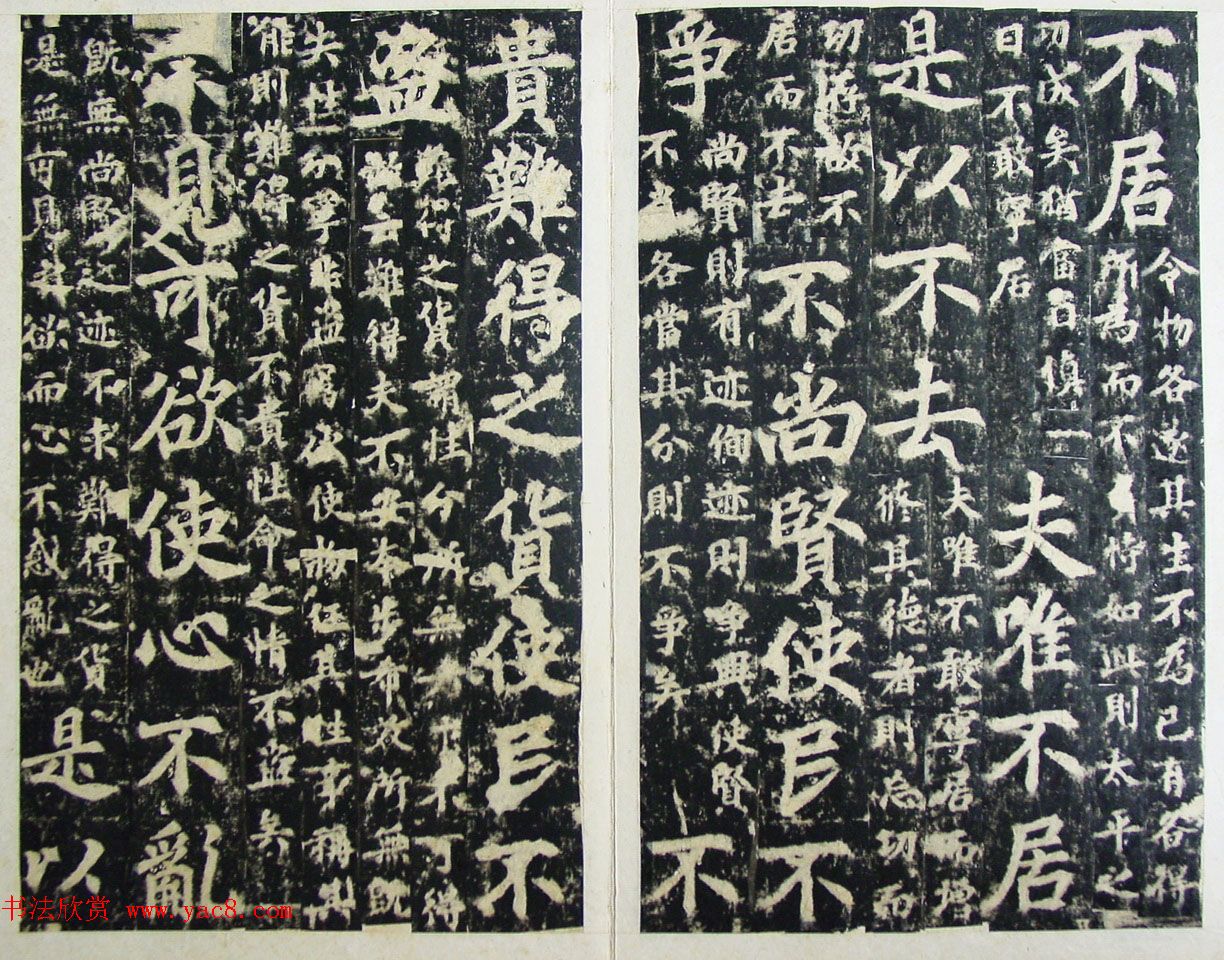 不居
令物各遂其生不為己有各得
所為而不恃如此則太平之
功成矣猶當日慎一
日不敢寧居
夫唯不居
是以不去
夫唯不敢寧居而增
修其德者則忘功而
功存故不
居而不去
不尚賢使民不
爭
尚賢則有迹徇迹則爭興使賢
不肖各當其分則不爭矣
不
貴難得之貨使民不
盜
難得之貨謂性分所無者求不可得
故云難得夫不安本分希效所無既
失性分寧非盜竊欲使物任其性事稱其
能則難得之貨不貴性命之情不盜矣
不見可欲使心不亂
既無尚賢之迹不求難得之貨
是無可見之欲而心不惑亂也
是以
书法欣赏 www.yac8.com